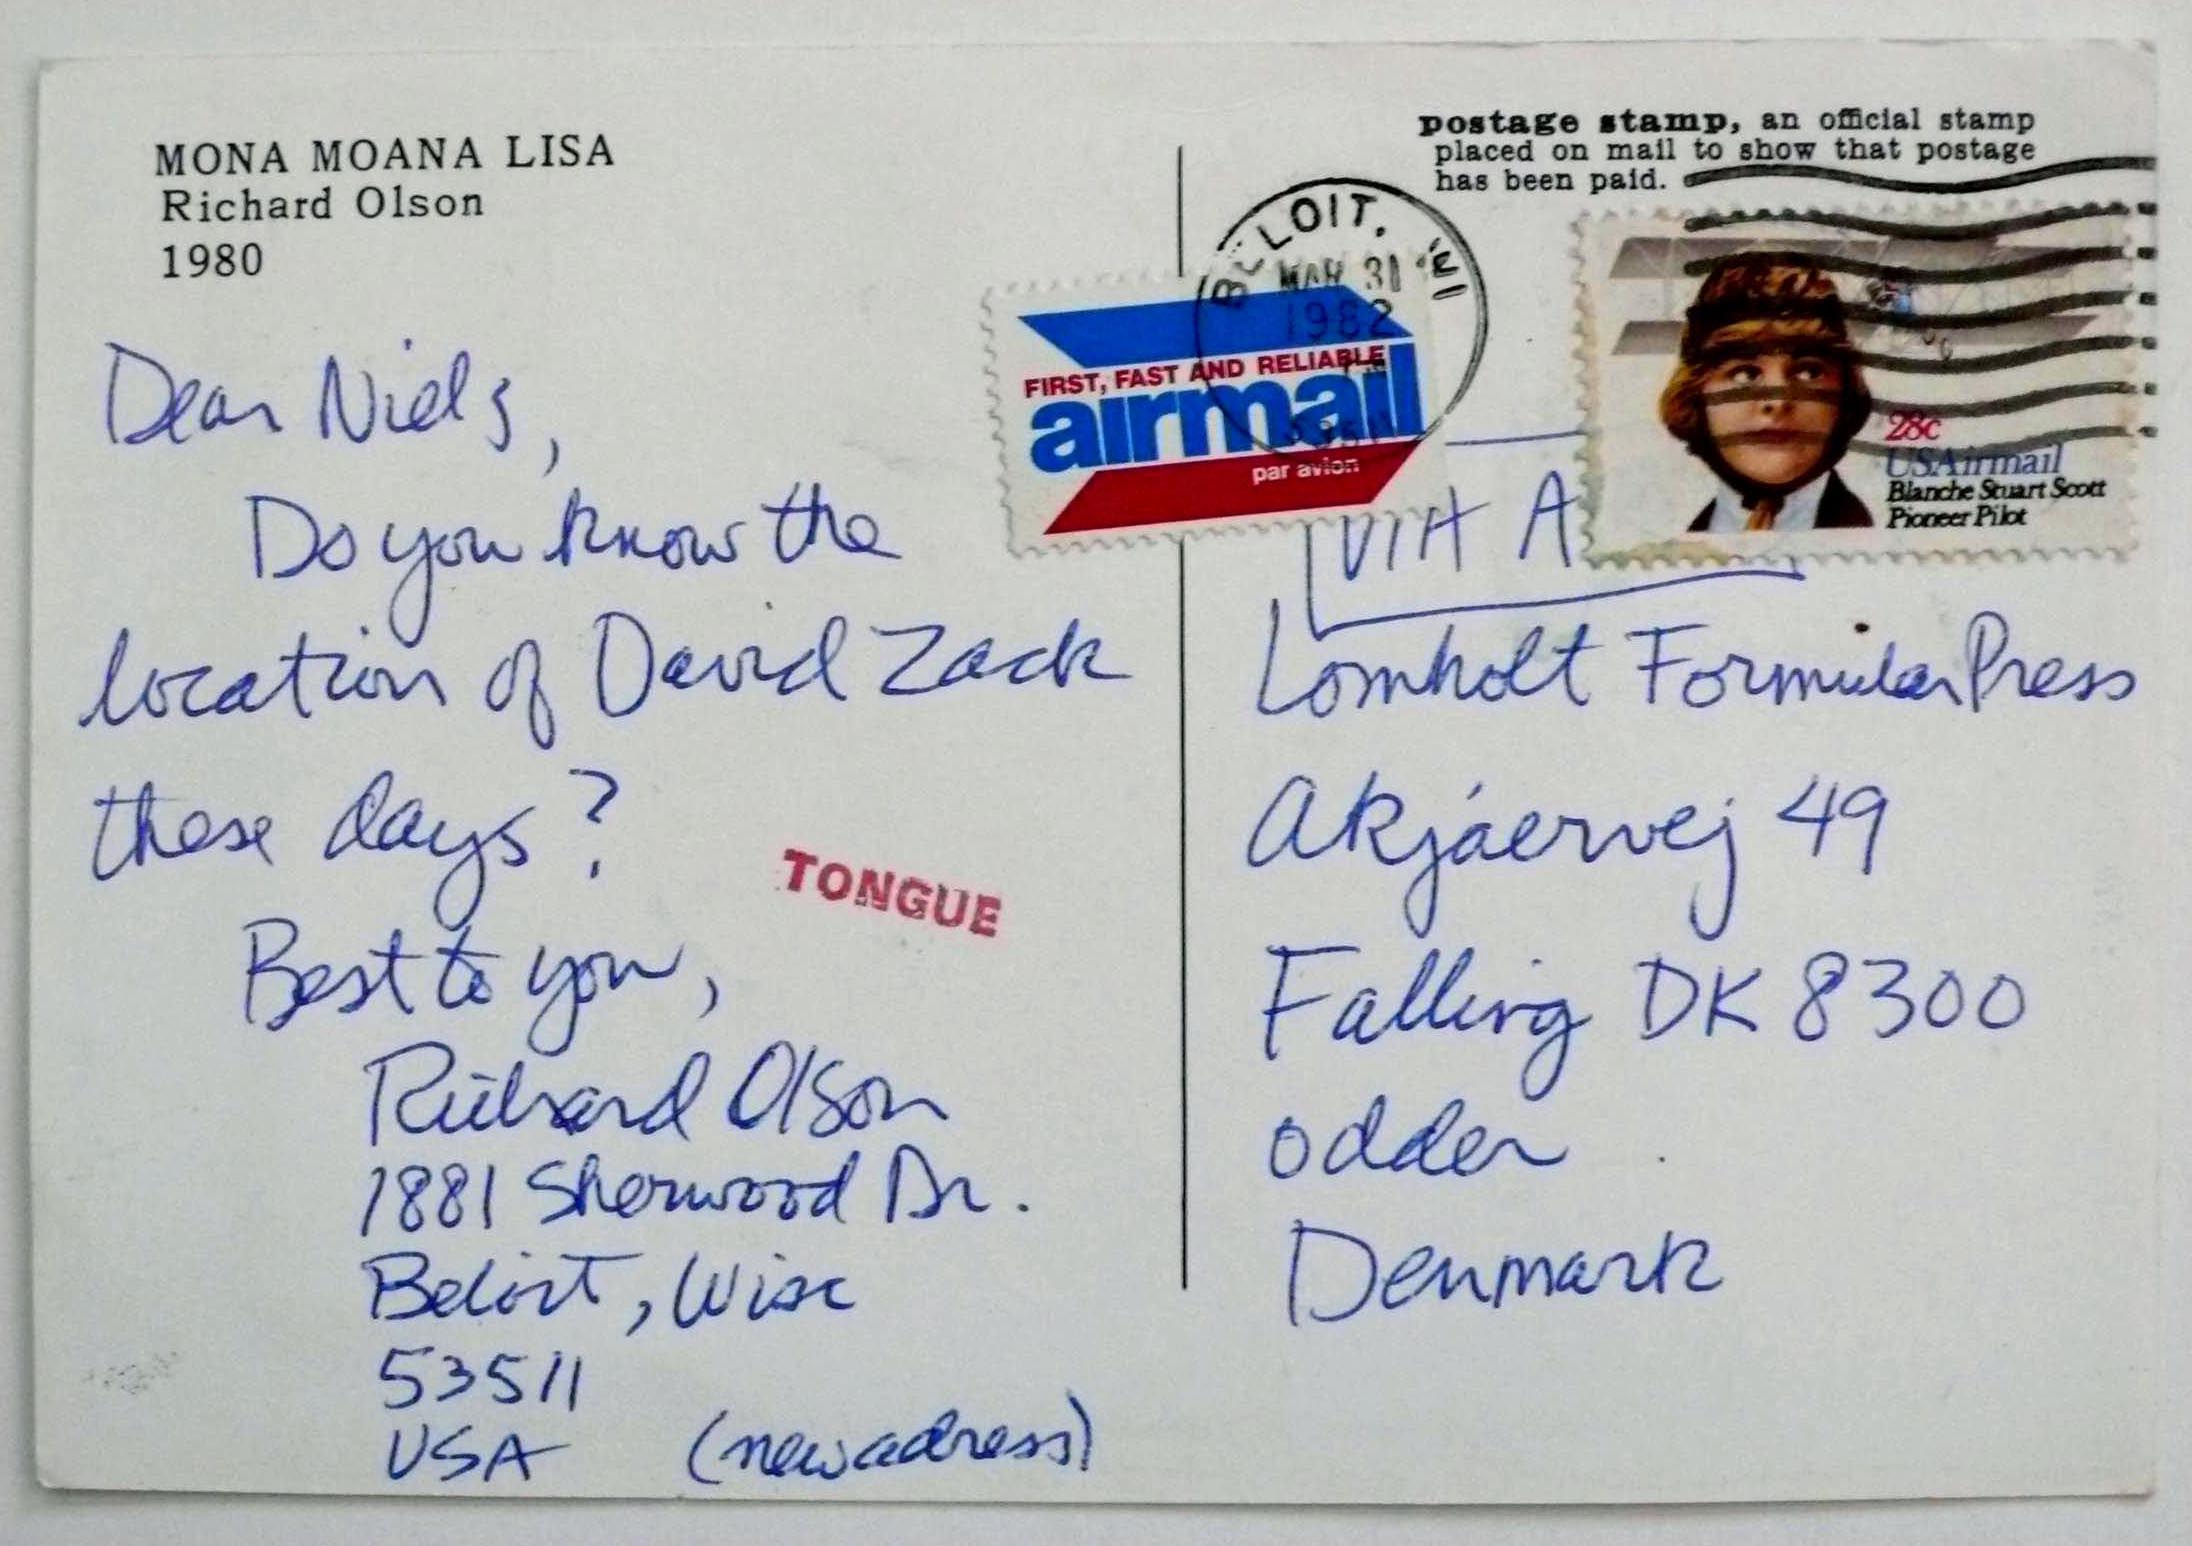 MONA MOANA LISA
Richard Olson
1980
Dear Niels,
Do you know the
location of David Zack
these days?
Best to you,
Richard Olson
1881 Sherwood Dr.
Beloit, Wisc
53511
USA (new adress)
TONGUE
postage stamp, an official stamp
placed on mail to show that postage
has been paid.
BELOIT, WI
MAR 31
1982
FIRST, FAST AND RELIABLE
airmail
par avion
28c
USAirmail
Blanche Stuart Scott
Pioneer Pilot
VIA A
Lomholt Formular Press
Akjáervej 49
Falling DK 8300
Odder
Denmark